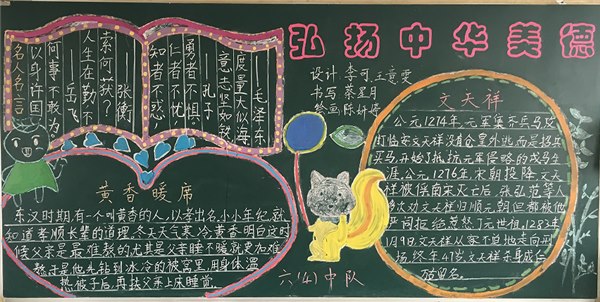 弘扬中华美德
名人名言
以身许国
何事不敢为
——岳飞
人生在勤不
索何获？
——张衡
知者不惑
仁者不忧
勇者不惧
——孔子
意志坚如铁
度量大似海
——毛泽东
设计 李可 王熹雯
书写 蔡星月
绘画 陈妍婷
黄香暖席
东汉时期,有一个叫黄香的人,以孝出名.小小年纪,就
知道孝顺长辈的道理.冬天天气寒冷,黄香明白这时
候父亲是最难熬的,尤其是父亲睡不暖就更加难
熬.于是他先钻到冰冷的被窝里,用身体温
热被子后,再扶父亲上床睡觉.
六(4)中队
文天祥
公元1274年,元军集齐兵马攻
打临安.文天祥没有仓皇外逃而是招兵
买马开始了抵抗元军侵略的戎马生
涯.公元1276年宋朝投降文天
祥被俘.南宋灭亡后,张弘范等人
多次劝文天祥归顺元朝,但都被他
严词拒绝.忽必
1月9日文天祥从容不迫地走向刑
场,终年47岁.文天祥杀身成仁